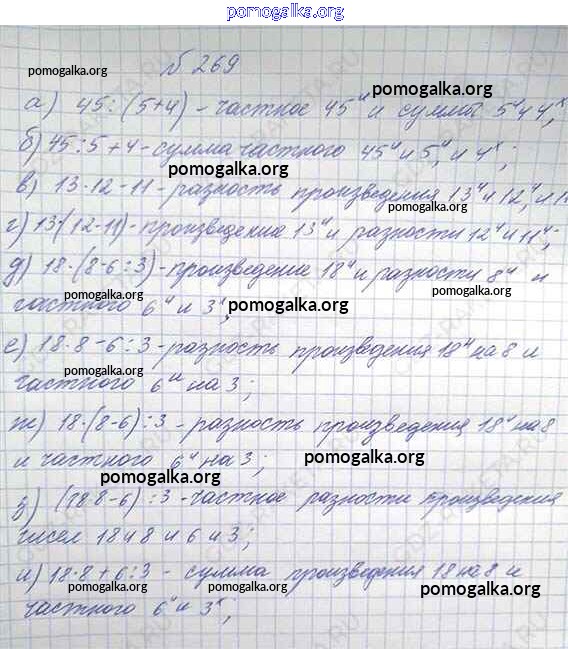 pomogalka.org
№ 269
pomogalka.org
pomogalka.org
а) 45:(5+4) - частное 45и и суммы 5и 4х,
б) 45:5+4 - сумма частного 45и и 5и, и 4х;
pomogalka.org
в) 13·12-11 - разность произведения 13и и 12и, и 1
г) 13·(12-11) - произведение 13и и разности 12и и 11и;
д) 18·(8-6:3) - произведение 18и и разности 8и и
pomogalka.org pomogalka.org
частного 6и и 3х;
pomogalka.org
е) 18·8-6:3 - разность произведения 18и на 8 и
pomogalka.org
частного 6и на 3;
ж) 18·(8-6):3 - разность произведения 18и на 8
и частного 6и на 3;
pomogalka.org
pomogalka.org
з) (18·8-6):3 - частное разности произведения
чисел 18 и 8 и 6 и 3;
и) 18·8+6:3 - сумма произведения 18 на 8 и
pomogalka.org pomogalka.org pomogalka.org
частного 6и и 3х;